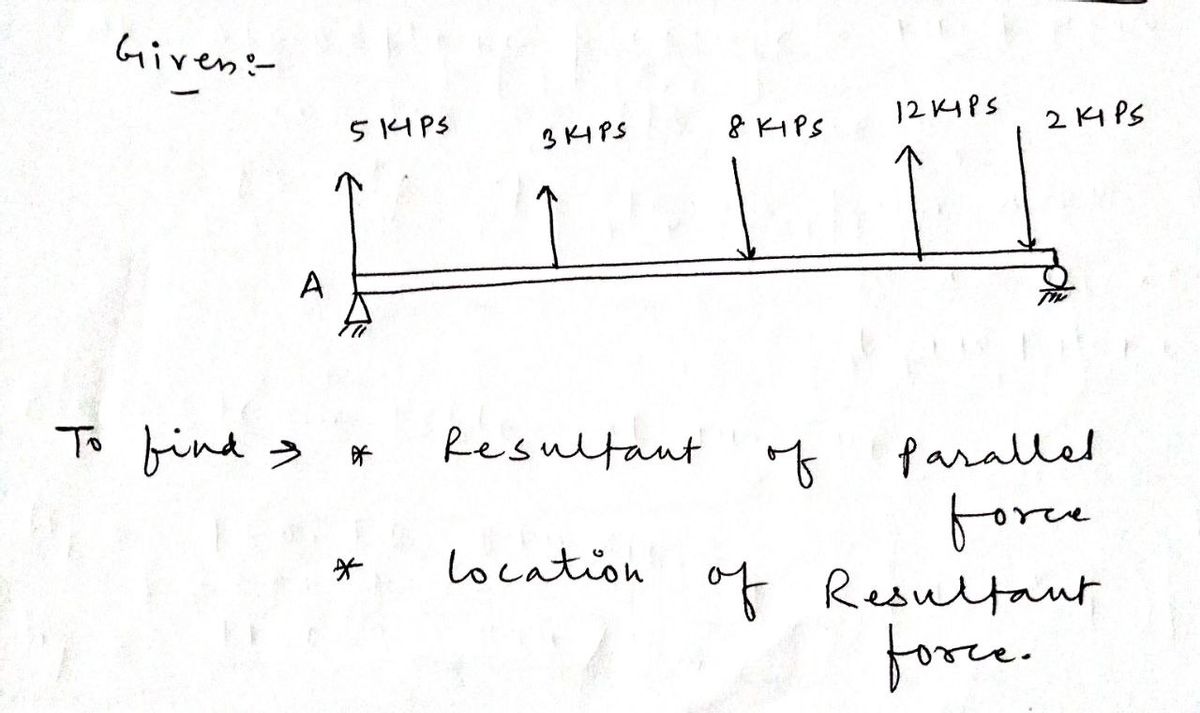 Given:-
5 KIPS 3 KIPS 8 KIPS 12 KIPS 2 KIPS
A
To find → * Resultant of parallel
force
* location of Resultant
force.